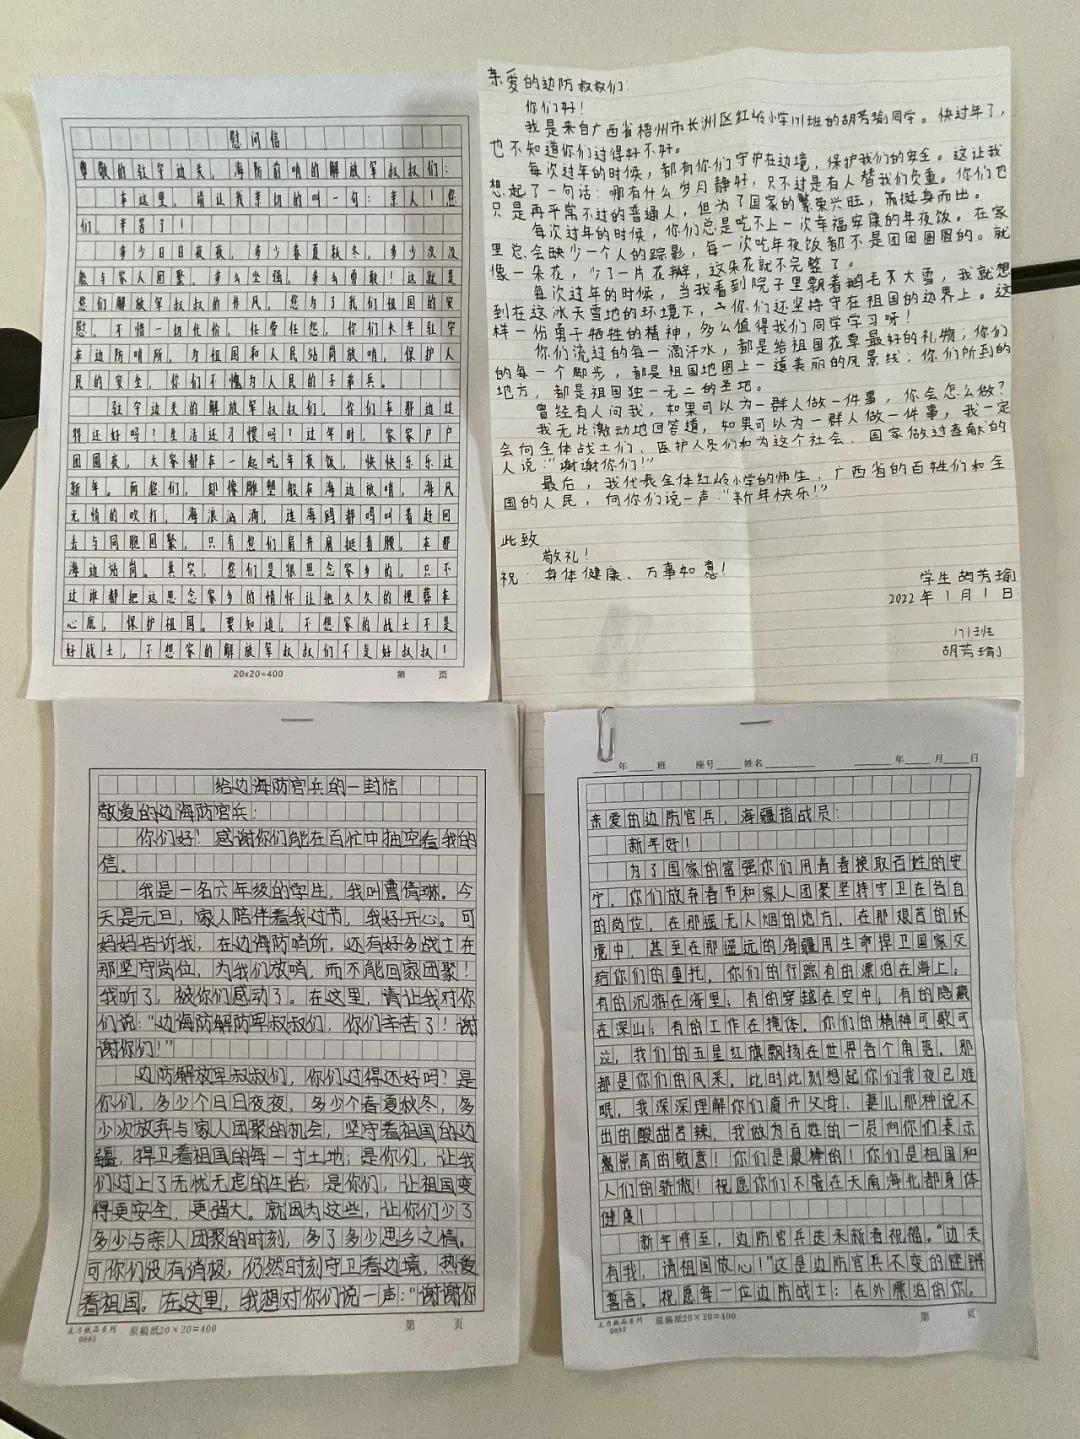 慰问信
尊敬的驻守边关、海防前哨的解放军叔叔们：
在这里，请让我亲切的叫一句：亲人！您
们，辛苦了！
多少日日夜夜，多少春夏秋冬，多少次没
能与家人团聚，多么坚强，多么勇敢！这就是
您们解放军叔叔的作风，您为了我们祖国的安
慰，不惜一切代价，任劳任怨，你们长年驻守
在边防哨所，为祖国和人民站岗放哨，保护人
民的安全，你们不愧为人民的子弟兵。
驻守边关的解放军叔叔们，你们在那边过
得还好吗？生活还习惯吗？过年时，家家户户
团圆夜，大家都在一起吃年夜饭，快快乐乐过
新年。而您们，却像雕塑般在海边放哨，海风
无情的吹打，海浪汹涌，连海鸥都鸣叫着赶回
去与同胞团聚，只有您们肩并肩挺着腰，在那
海边站岗。其实，您们是很思念家乡的，只不
过谁都把这思念家乡的情怀让他久久的埋葬在
心底，保护祖国。要知道，不想家的战士不是
好战士，不想家的解放军叔叔们不是好叔叔！
20×20=400 第 页
亲爱的边防叔叔们：
你们好！
我是来自广西省梧州市长洲区红岭小学171班的胡芳瑜同学。快过年了，
也不知道你们过得好不好。
每次过年的时候，都有你们守护在边境，保护我们的安全。这让我
想起了一句话：哪有什么岁月静好，只不过是有人替我们负重。你们也
只是再平常不过的普通人，但为了国家的繁荣兴旺，而挺身而出。
每次过年的时候，你们总是吃不上一次幸福安康的年夜饭。在家
里总会缺少一个人的踪影，每一次吃年夜饭都不是团团圆圆的。就
像一朵花，少了一片花瓣，这朵花就不完整了。
每次过年的时候，当我看到院子里飘着鹅毛大雪，我就想
到在这冰天雪地的环境下，你们还坚持守在祖国的边界上。这
样一份勇于牺牲的精神，多么值得我们同学学习呀！
你们流过的每一滴汗水，都是给祖国花草最好的礼物；你们
的每一个脚步，都是祖国地图上一道美丽的风景线；你们所到的
地方，都是祖国独一无二的圣地。
曾经有人问我，如果可以为一群人做一件事，你会怎么做？
我无比激动地回答道，如果可以为一群人做一件事，我一定
会向全体战士们、医护人员们和为这个社会、国家做过贡献的
人说：“谢谢你们！”
最后，我代表全体红岭小学的师生、广西省的百姓们和全
国的人民，向你们说一声：“新年快乐！”
此致
敬礼！
祝：身体健康、万事如意！
学生 胡芳瑜
2022年1月1日
171班
胡芳瑜
给边海防官兵的一封信
敬爱的边海防官兵：
你们好！感谢你们能在百忙中抽空看我的
信。
我是一名六年级的学生，我叫曹倩琳。今
天是元旦，家人陪伴着我过节，我好开心。可
妈妈告诉我，在边海防哨所，还有好多战士在
那坚守岗位，为我们放哨，而不能回家团聚！
我听了，被你们感动了。在这里，请让我对你
们说：“边海防解防军叔叔们，你们辛苦了！谢
谢你们！”
边防解放军叔叔们，你们过得还好吗？是
你们，多少个日日夜夜，多少个春夏秋冬，多
少次放弃与家人团聚的机会，坚守着祖国的边
疆，捍卫着祖国的每一寸土地；是你们，让我
们过上了无忧无虑的生活；是你们，让祖国变
得更安全、更强大。就因为这些，让你们少了
多少与亲人团聚的时刻，多了多少思乡之情。
可你们没有消极，仍然时刻守卫着边境，热爱
着祖国。在这里，我想对你们说一声：“谢谢你
0885 原稿纸20×20=400 第 页
年 班 座号 姓名 年 月 日
亲爱的边防官兵、海疆指战员：
新年好！
为了国家的富强你们用青春换取百姓的安
宁，你们放弃春节和家人团聚坚持守卫在各自
的岗位，在那遥无人烟的地方，在那艰苦的环
境中，甚至在那遥远的海疆用生命捍卫国家交
给你们的重托，你们的行踪有的漂泊在海上；
有的沉游在海里；有的穿越在空中；有的隐藏
在深山；有的工作在掩体，你们的精神可歌可
泣，我们的五星红旗飘扬在世界各个角落，那
都是你们的风采，此时此刻想起你们我夜已难
眠，我深深理解你们离开父母、妻儿那种说不
出的酸甜苦辣，我做为百姓的一员向你们表示
崇高的敬意！你们是最棒的！你们是祖国和
人们的骄傲！祝愿你们不管在天南海北都身体
健康！
新年将至，边防官兵送来新春祝福。“边关
有我，请祖国放心！”这是边防官兵不变的铿锵
誓言。祝愿每一位边防战士：在外漂泊的你，
0885 原稿纸20×20=400 第 页